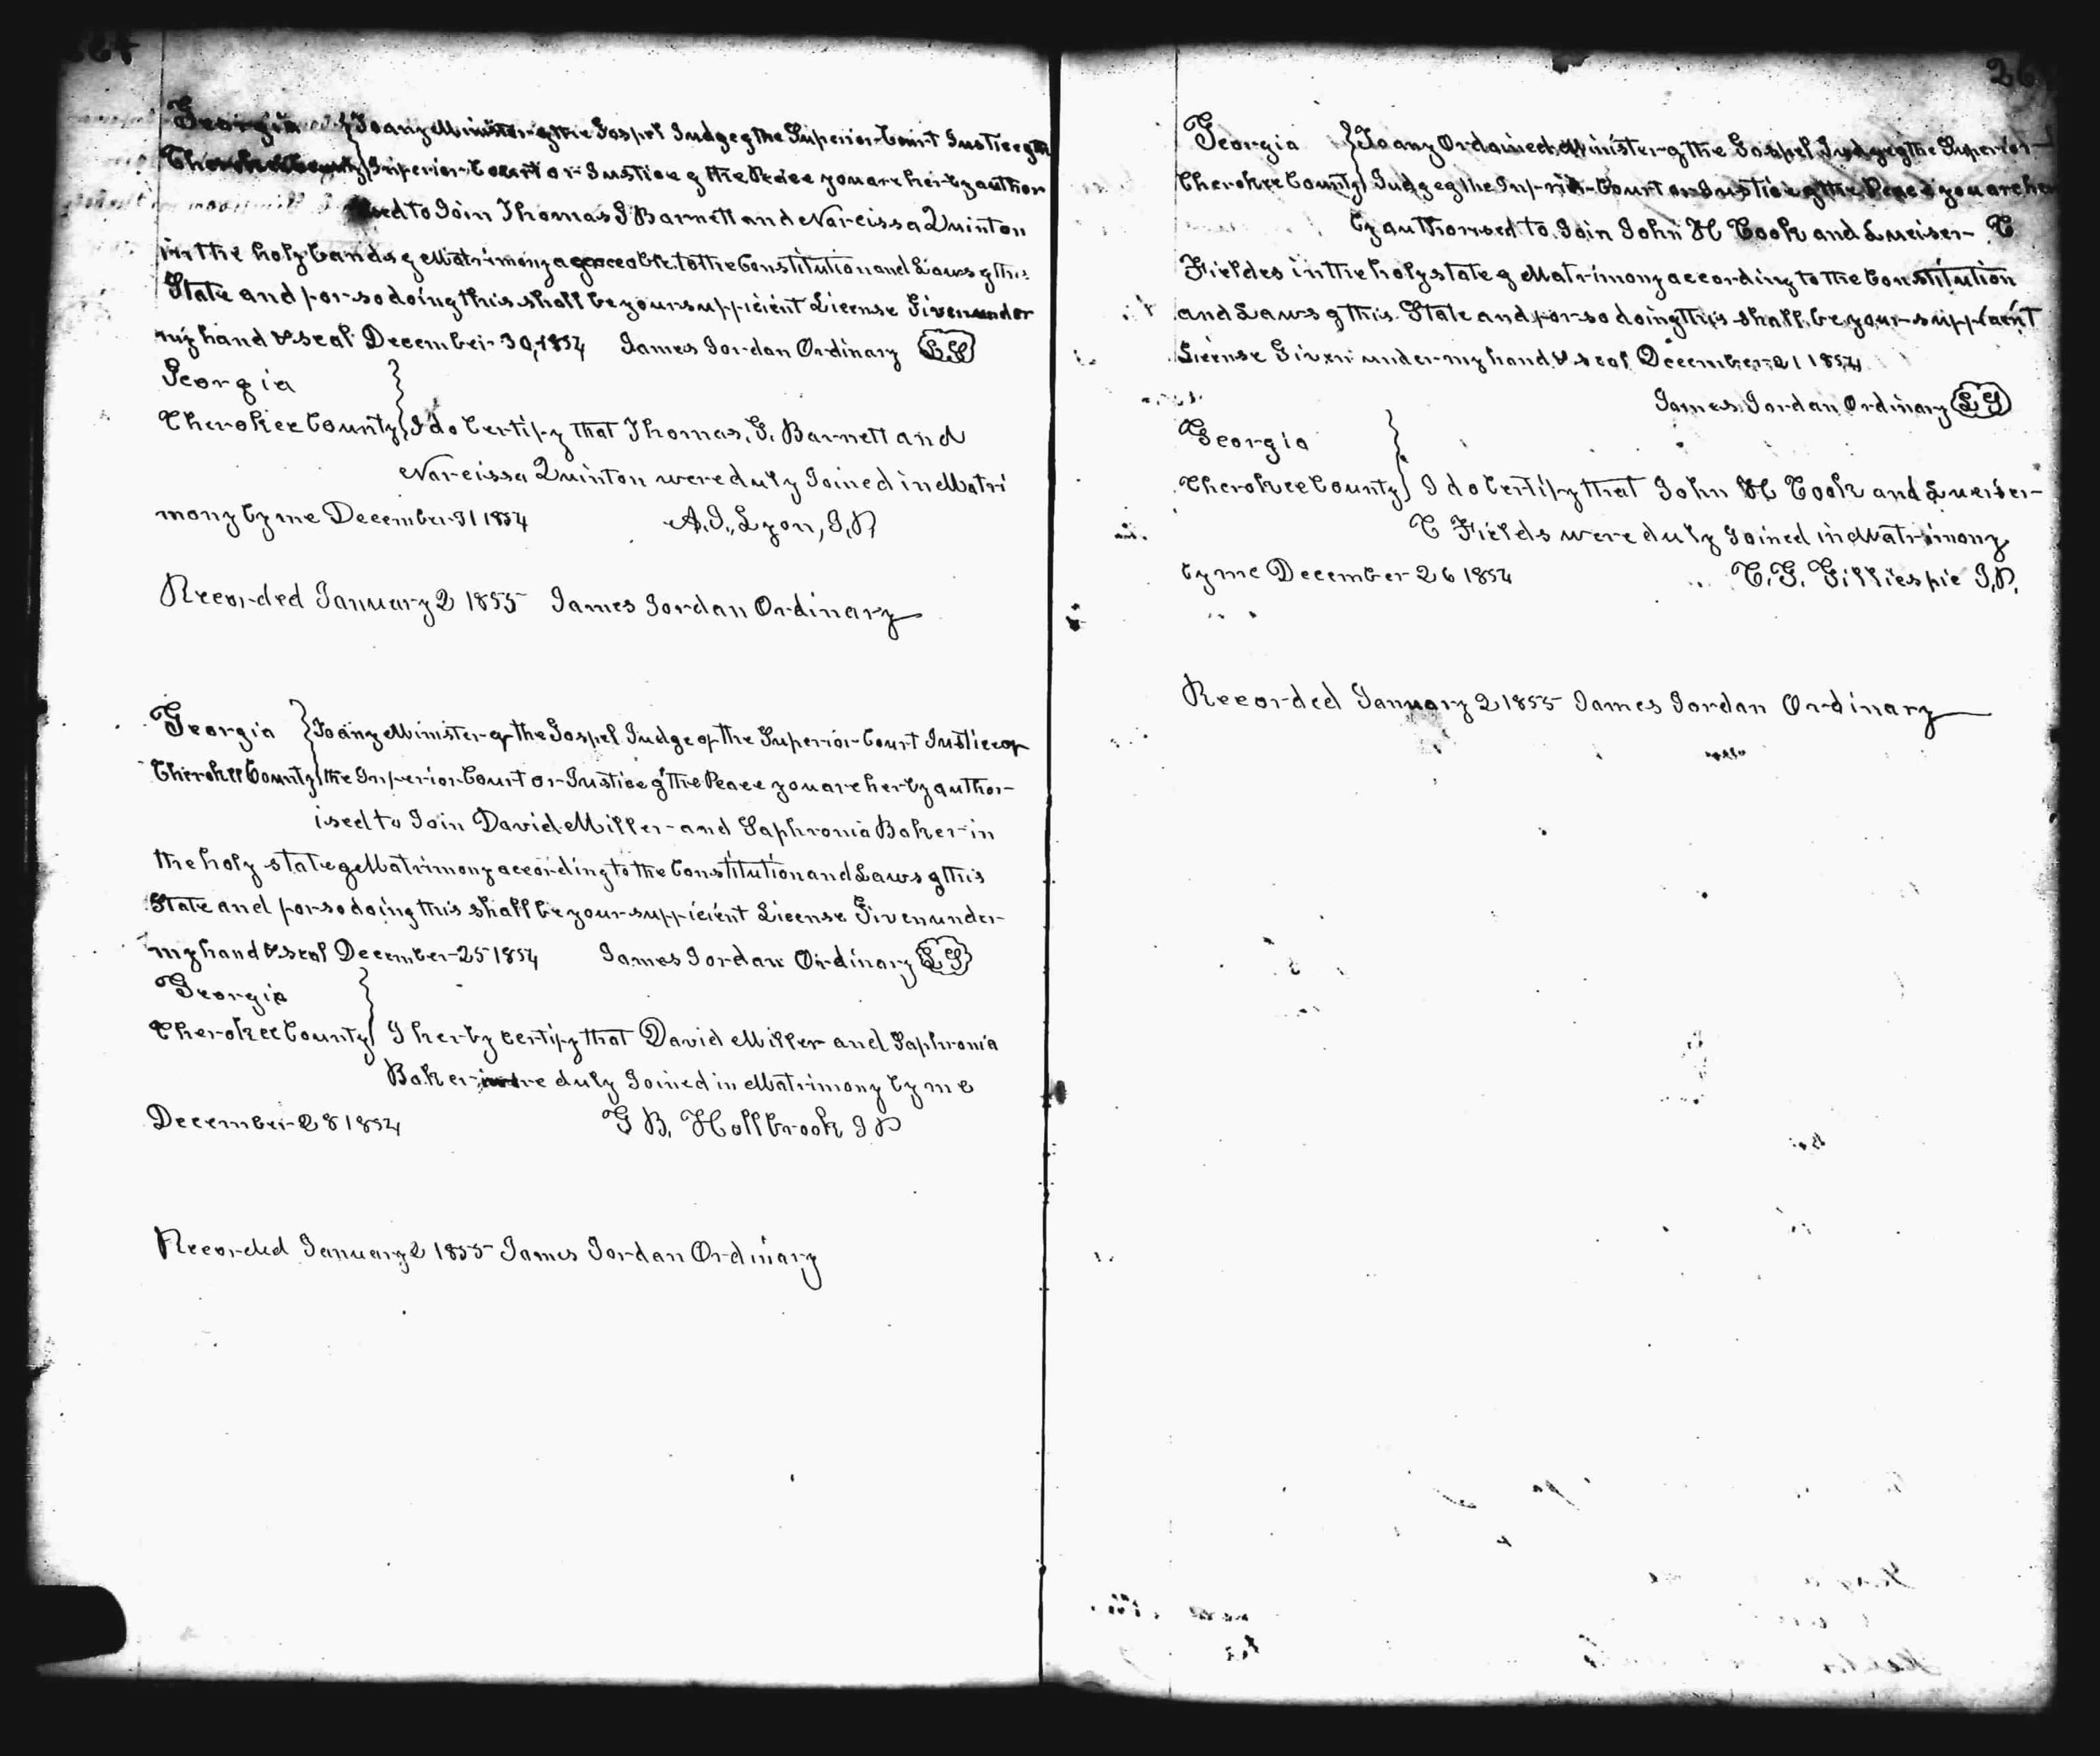 264
Georgia } To any Minister of the Gospel Judge of the Superior Court Justice of the
Cherokee County } Inferior Court or Justice of the Peace you are herby author
ised to Join Thomas G Barnett and Narcissa Quinton
in the holy bands of Matrimony agreeable to the Constitution and Laws of this
State and for so doing this shall be your sufficient License Given under
my hand & seal December 30, 1854 James Jordan Ordinary LS
Georgia }
Cherokee County } I do Certify that Thomas, G. Barnett and
Narcissa Quinton were duly Joined in Matri
mony by me December 31 1854 A. J., Lyon, J, P,
Recorded January 2 1855 James Jordan Ordinary
Georgia } To any Minister of the Gospel Judge of the Superior Court Justice of
Cherokee County } the Inferior Court or Justice of the Peace you are herby author-
ised to Join David Miller and Saphronia Baker in
the holy state of Matrimony according to the Constitution and Laws of this
State and for so doing this shall be your sufficient License Given under
my hand & seal December 25 1854 James Jordan Ordinary LS
Georgia }
Cherokee County } I herby certify that David Miller and Saphronia
Baker were duly Joined in Matrimony by me
December 28 1854 G B. Hollbrook J P
Recorded January 2 1855 James Jordan Ordinary
26
Georgia } To any Ordained Minister of the Gospel Judge of the Superior
Cherokee County } Judge of the Inferior Court or Justice of the Peace you are her
by authorised to Join John H Cook and Lueiser C
Fieldes in the holy state of Matrimony according to the Constitution
and Laws of this State and for so doing this shall be your sufficient
License Given under my hand & seal December 21 1854
James Jordan Ordinary LS
Georgia }
Cherokee County } I do Certify that John H Cook and Lueiser
C Fields were duly Joined in Matrimony
by me December 26 1854 C. G. Gilliespie J, P,
Recorded January 2 1855 James Jordan Ordinary